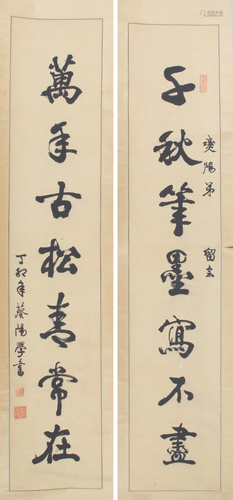 千秋筆墨寫不盡
燮陽弟 留念
萬年古松青常在
丁卯年葵陽學書